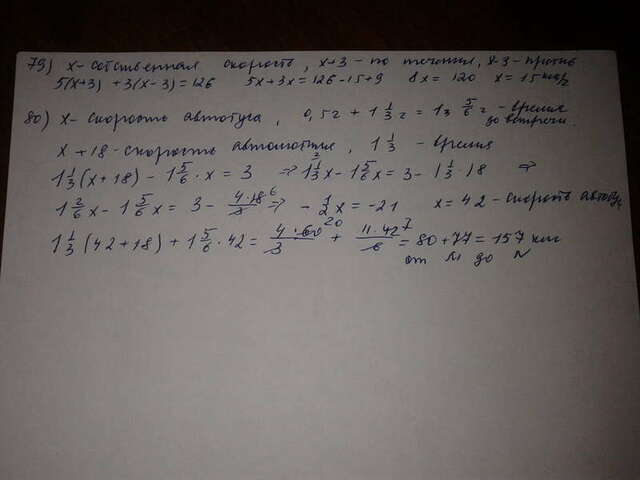 79) x - собственная скорость, x+3 - по течению, x-3 - против
5(x+3) + 3(x-3) = 126 5x+3x = 126-15+9 8x = 120 x = 15 км/ч
80) x - скорость автобуса, 0,5ч + 1 1/3 ч = 1 5/6 ч - время
до встречи.
x + 18 - скорость автомобиля, 1 1/3 - время
1 1/3 (x+18) - 1 5/6 · x = 3 ⇒ 1 1/3 x - 1 5/6 x = 3 - 1 1/3 · 18 ⇒
1 2/6 x - 1 5/6 x = 3 - 4·18 6/3 ⇒ - 1/2 x = -21 x = 42 - скорость автобус
1 1/3 (42+18) + 1 5/6 · 42 = 4·60 20/3 + 11·42 7/6 = 80+77 = 157 км
от M до N